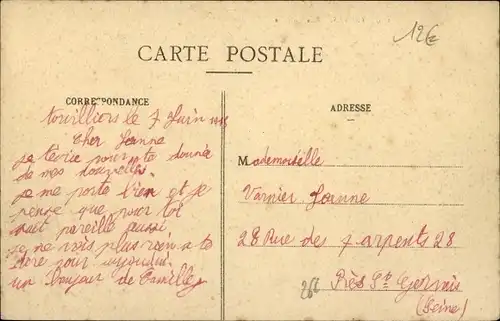 12€
CARTE POSTALE
CORRESPONDANCE
ADRESSE
le 7 Juin
Cher Jeanne
je tecrie pour te donnée
de mes nouvelles
je me porte bien et je
pense que pour toi
soit pareille aussi
je ne vois plus rien a te
dire pour aujourdui
un bonjour de Camille
Mademoiselle
Varnier Jeanne
28 Rue des 7 arpents 28
Près St Gervais
(Seine)